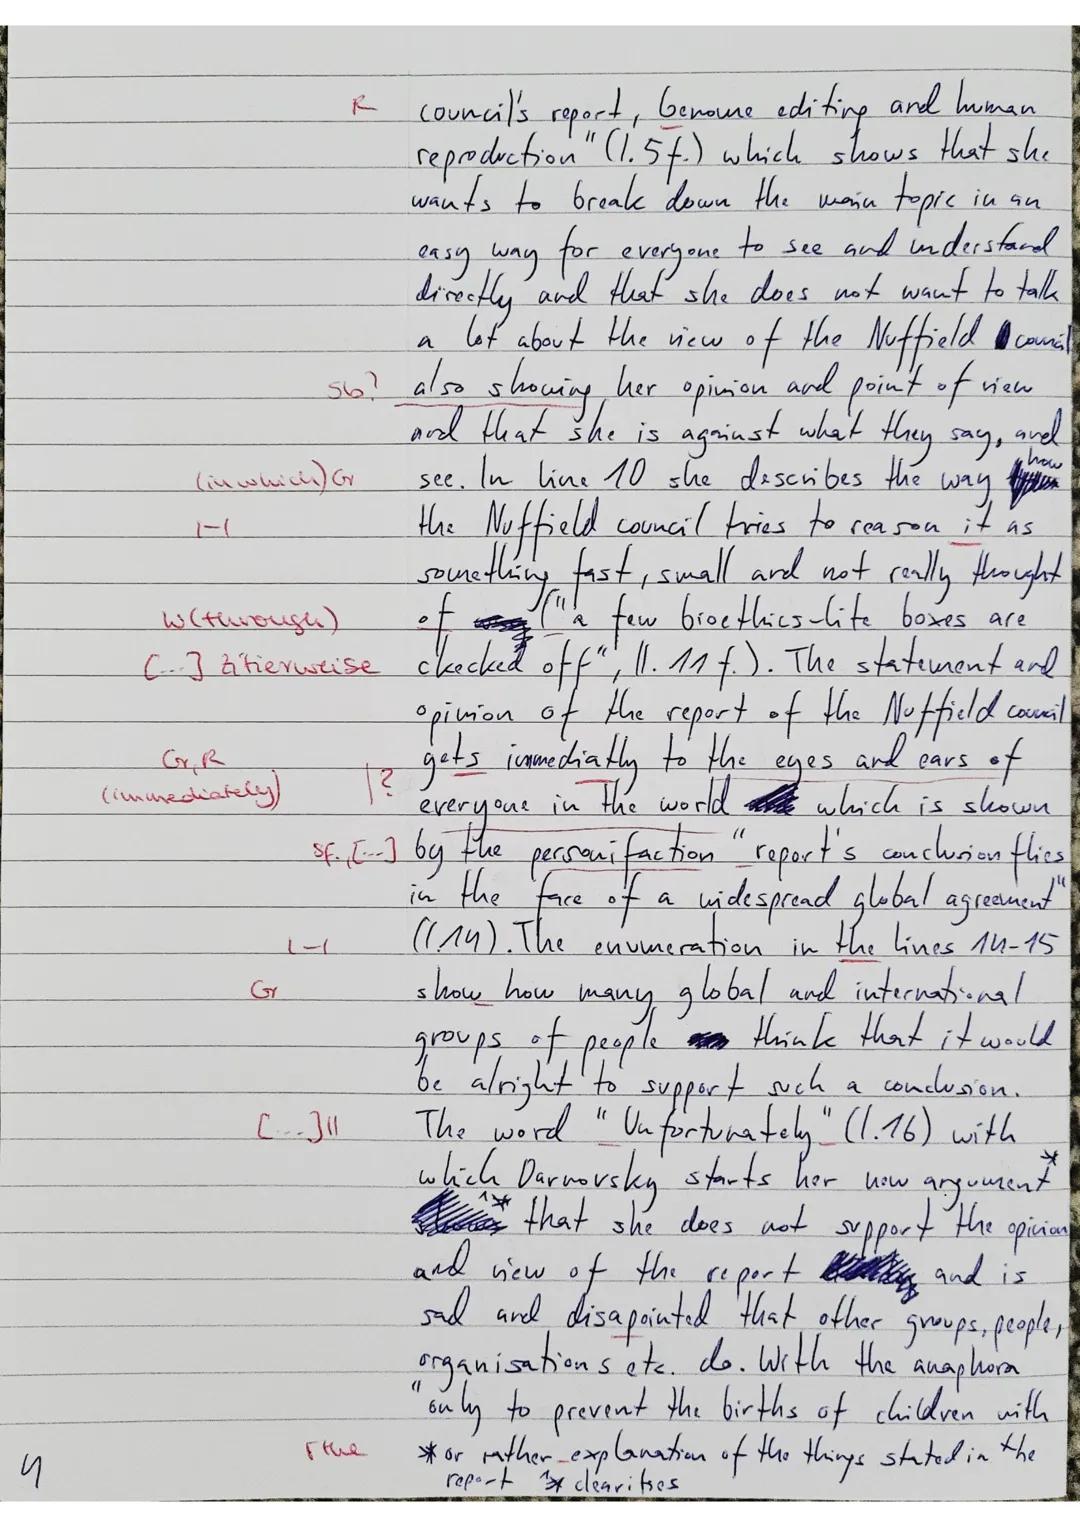 R council's report, Genome editing and human
reproduction" (l. 5f.) which shows that she
wants to break down the main topic in an
easy way for everyone to see and understand
directly and that she does not want to talk
a lot about the view of the Nuffield council
Sb? also showing her opinion and point of view
and that she is against what they say, and
(in which) Gr see. In line 10 she describes the way how
I-I the Nuffield council tries to reason it as
something fast, small and not really thought
W (through) of ("a few bioethics-lite boxes are
[...] Zitierweise checked off", ll. 11 f.). The statement and
opinion of the report of the Nuffield council
Gr, R gets immediatly to the eyes and ears of
(immediately) |? everyone in the world which is shown
sf., [...] by the personifaction "report's conclusion flies
in the face of a widespread global agreement"
(l.14). The enumeration in the lines 14-15
I-I
Gr show how many global and international
groups of people think that it would
be alright to support such a conclusion.
[...] II The word "Unfortunately" (l.16) with
which Darnovsky starts her new argument *
1* that she does not support the opinion
and view of the report and is
sad and disapointed that other groups, people,
organisations etc. do. With the anaphora
"only to prevent the births of children with
Γ the * or rather explanation of the things stated in the
report 1* clearifies
4